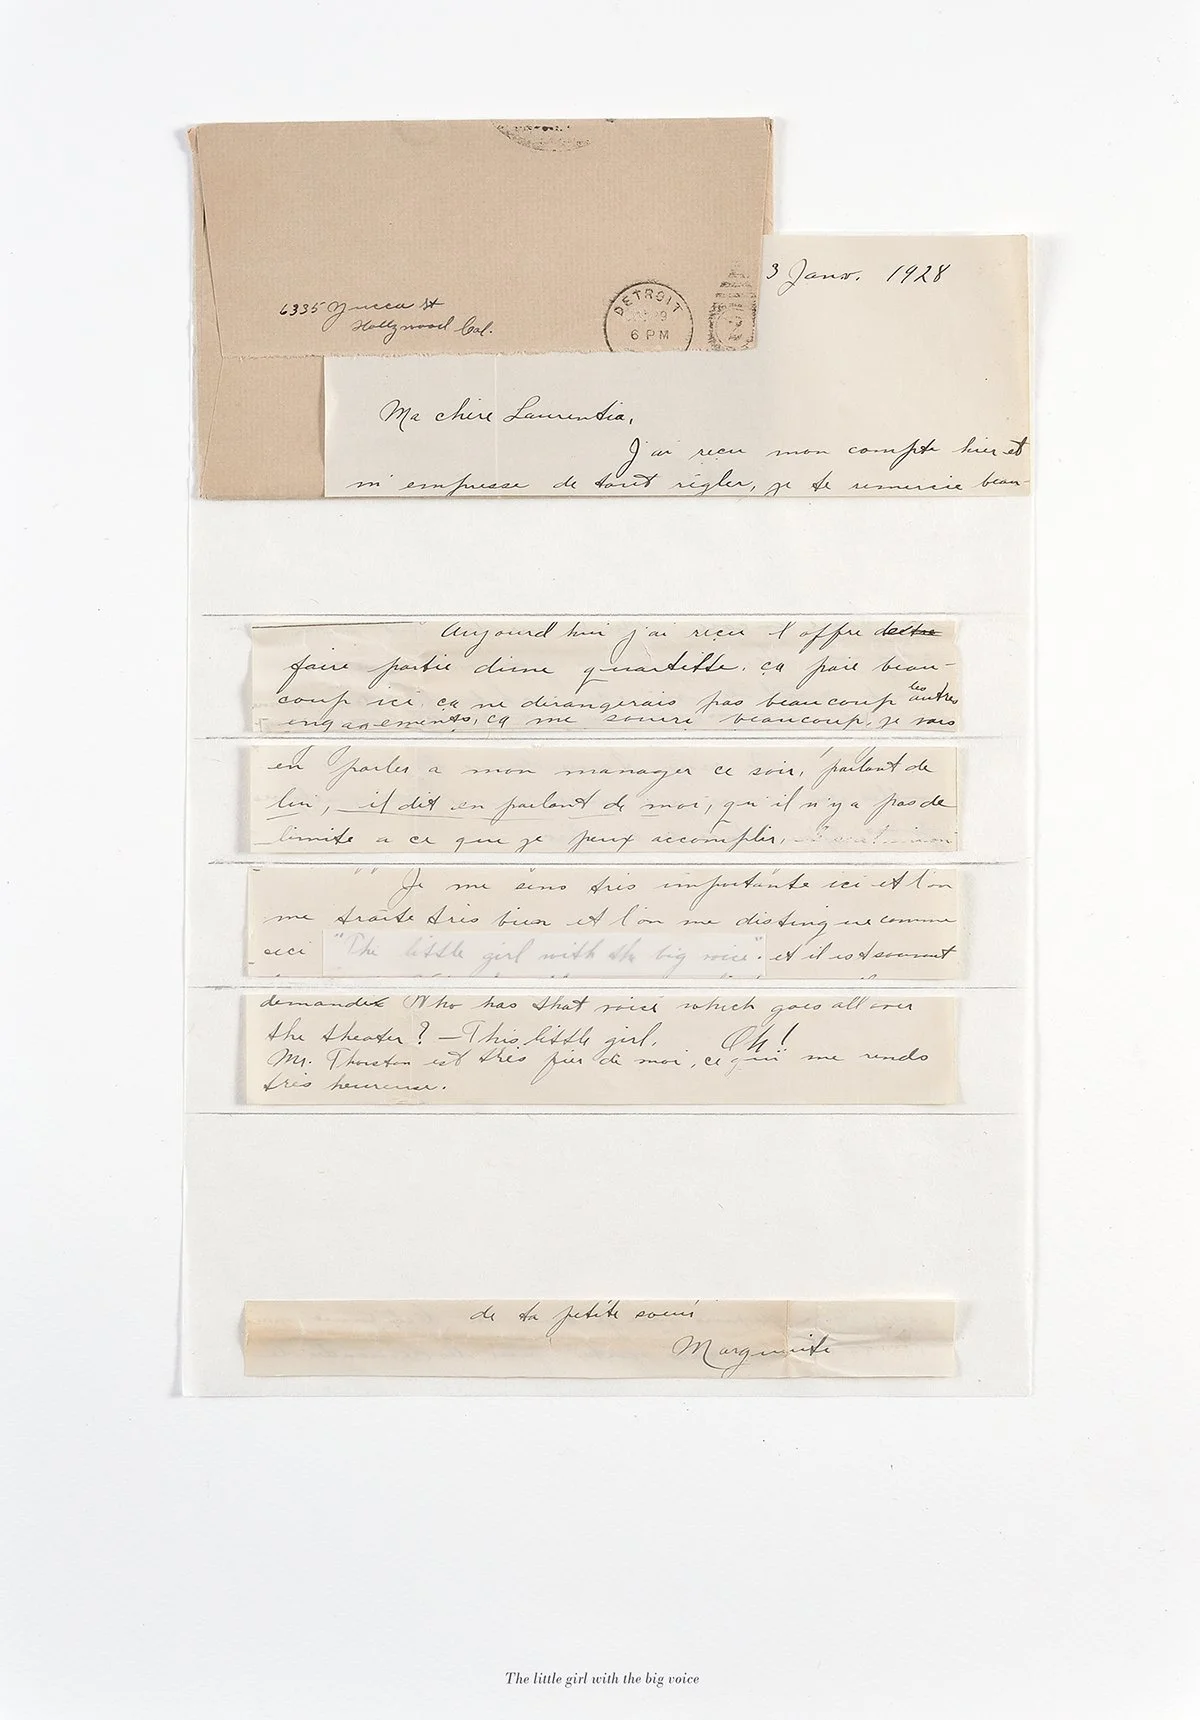 6335 Yucca St
Hollywood Cal.
DETROIT
6 PM
3 Janv. 1928
Ma chère Laurentia,
J'ai recu mon compte hier et
m'empresse de tout régler, je te remercie beau-
Aujourd hui j'ai recu l'offre
faire partie d'une quartette. ça paie beau-
coup ici, ça ne dérangerais pas beaucoup les autres
engagements, ça me souri beaucoup, je vais
en parler a mon manager ce soir, parlant de
lui, il dit en parlant de moi, qu'il n'y a pas de
limite a ce que je peux accomplir,
Je me sens très importante ici et l'on
me traite très bien et l'on me distingue comme
ceci "The little girl with the big voice". et il est souvent
demandez Who has that voice which goes all over
the theater? — This little girl. Oh!
Mr. Thurston est très fier de moi, ce qui me rends
très heureuse.
de ta petite soeur
Marguerite
The little girl with the big voice